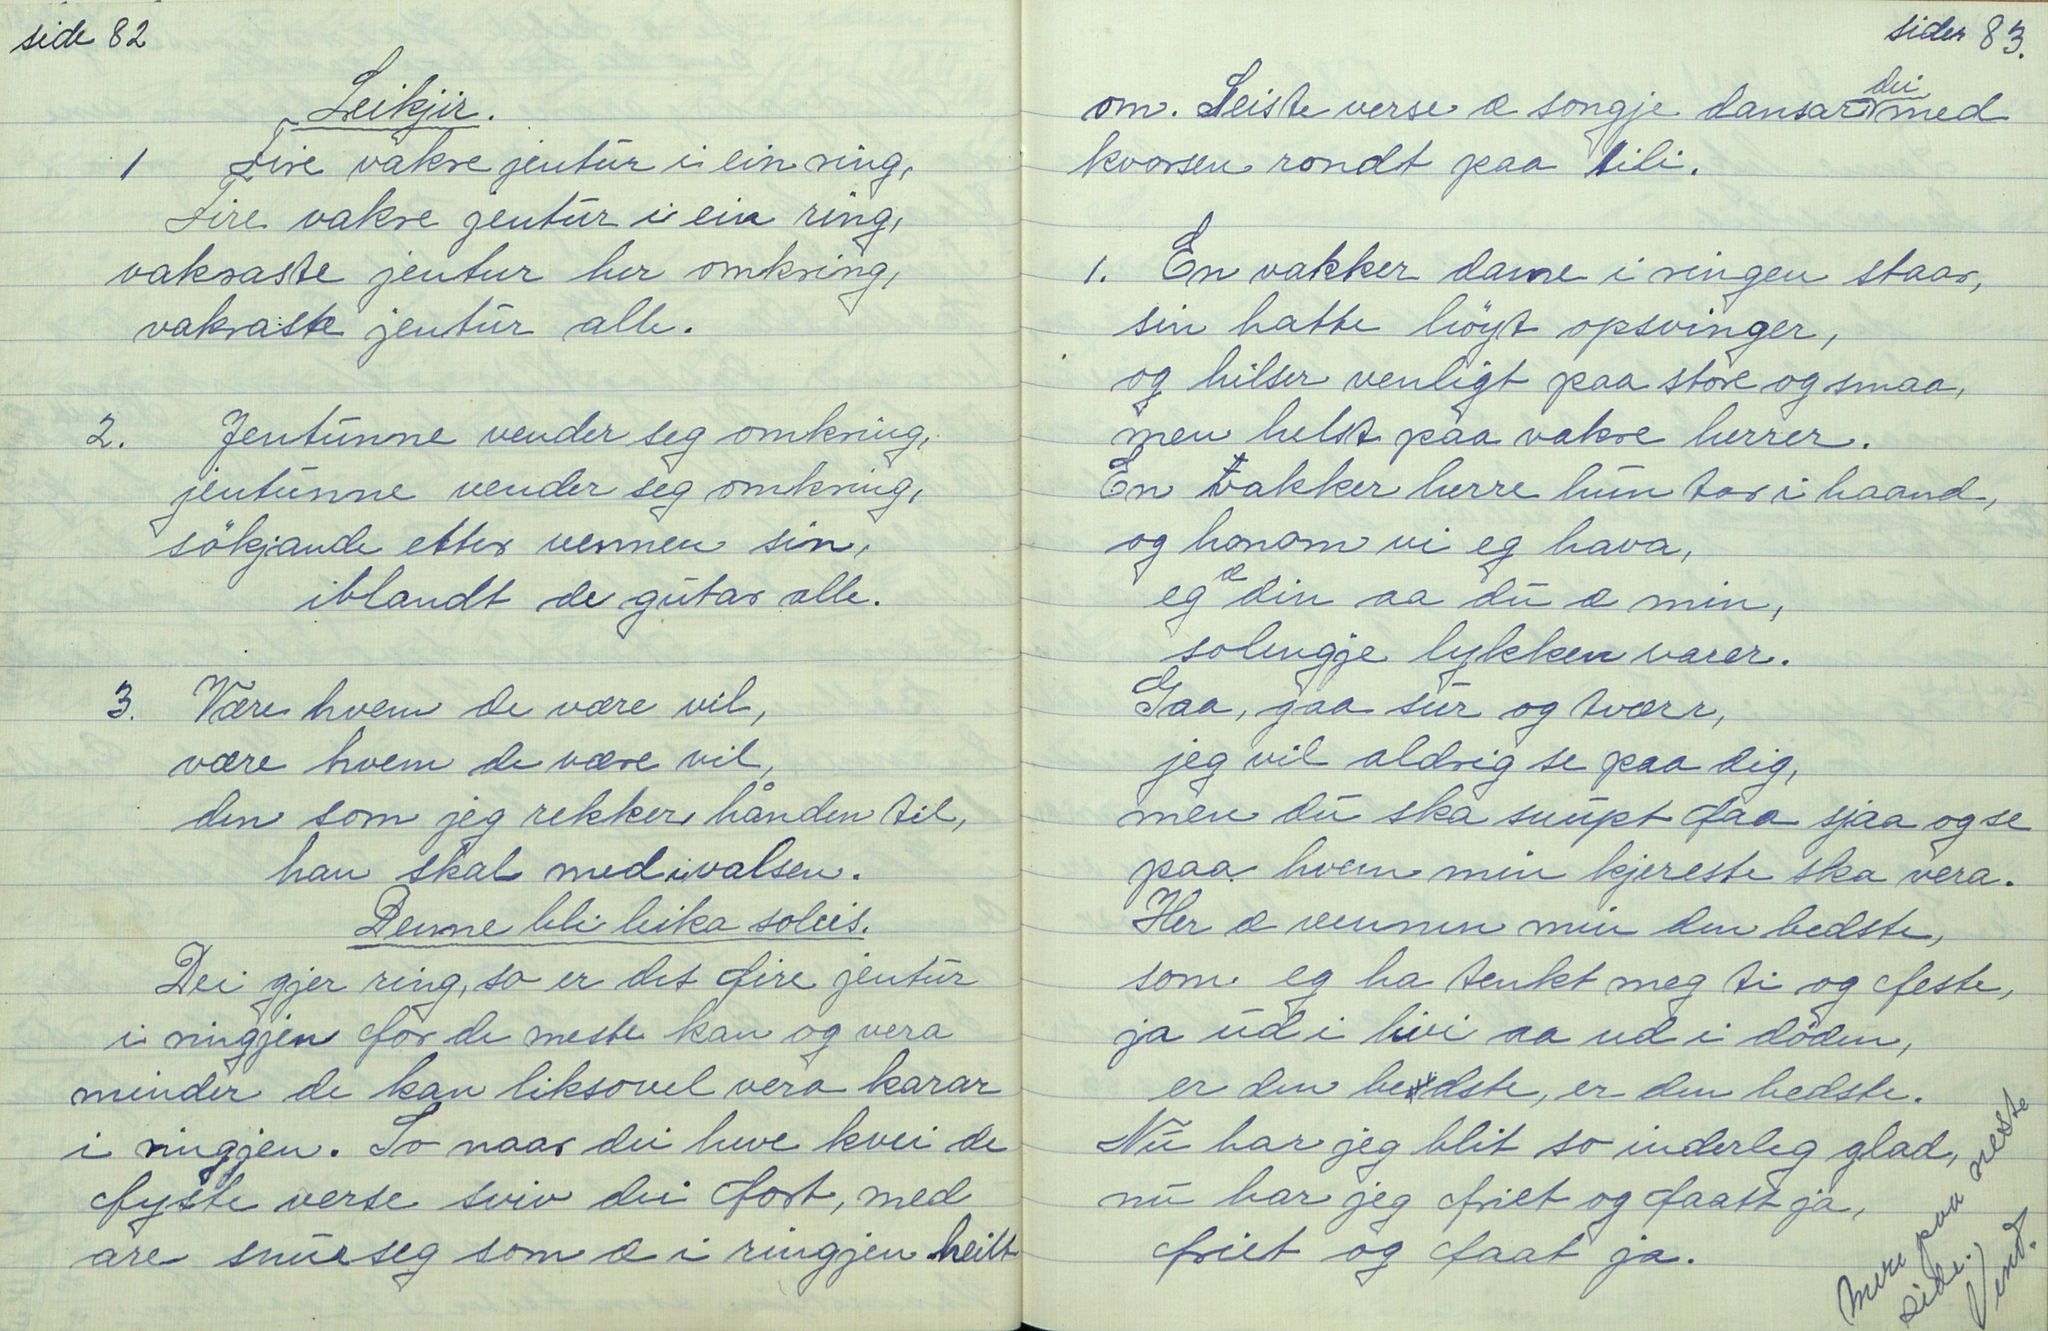 side 82
Leikjir.
1 Fire vakre jentur i ein ring,
Fire vakre jentur i ein ring,
vakraste jentur her omkring,
vakraste jentur alle.
2. Jentunne vender seg omkring,
jentunne vender seg omkring,
sökjande etter vennen sin,
iblandt de gutar alle.
3. Være hvem de være vil,
være hvem de være vil,
den som jeg rekker hånden til,
han skal med i valsen.
Denne bli leika soleis.
Dei gjer ring, so er det fire jentur
i ringjen for de meste kan og vera
minder de kan liksovel vera karar
i ringjen. So naar dei heve kvei de
fyste verse sviv dei fort, med
are snue seg som æ i ringjen heilt
sider 83.
om. Seiste verse æ songje dansar dei med
kvorsen rondt paa tili.
1. En vakker dame i ringen staar,
sin hatte höyt opsvinger,
og hilser venligt paa store og smaa,
men helst paa vakre herrer.
En vakker herre hun tar i haand,
og honom vi eg hava,
eg æ din aa du æ min,
solengje lykken varer.
Gaa, gaa sur og tværr,
jeg vil aldrig se paa dig,
men du ska snupt faa sjaa og se
paa hvem min kjereste ska vera.
Her æ vennen min den bedste,
som eg ha tenkt meg ti og feste,
ja ud i livi aa ud i döden,
er den bedste, er den bedste.
Nu har jeg blit so inderleg glad,
nu har jeg friet og faatt ja,
friet og faat ja.
mere paa neste
side.
Vend.